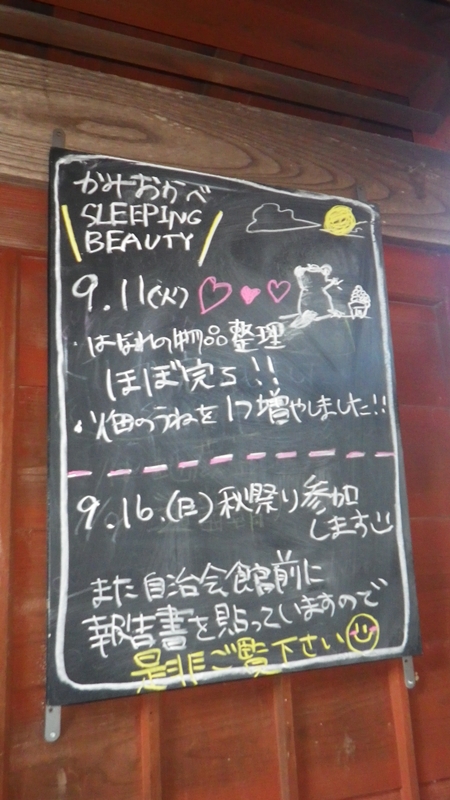 かみおかべ
SLEEPING
BEAUTY
9.11(火)
・はなれの物品整理
ほぼ完了!!
・畑のうねを1つ増やしました!!
9.16.(日)秋祭り参加
します
また自治会館前に
報告書を貼っていますので
是非ご覧下さい